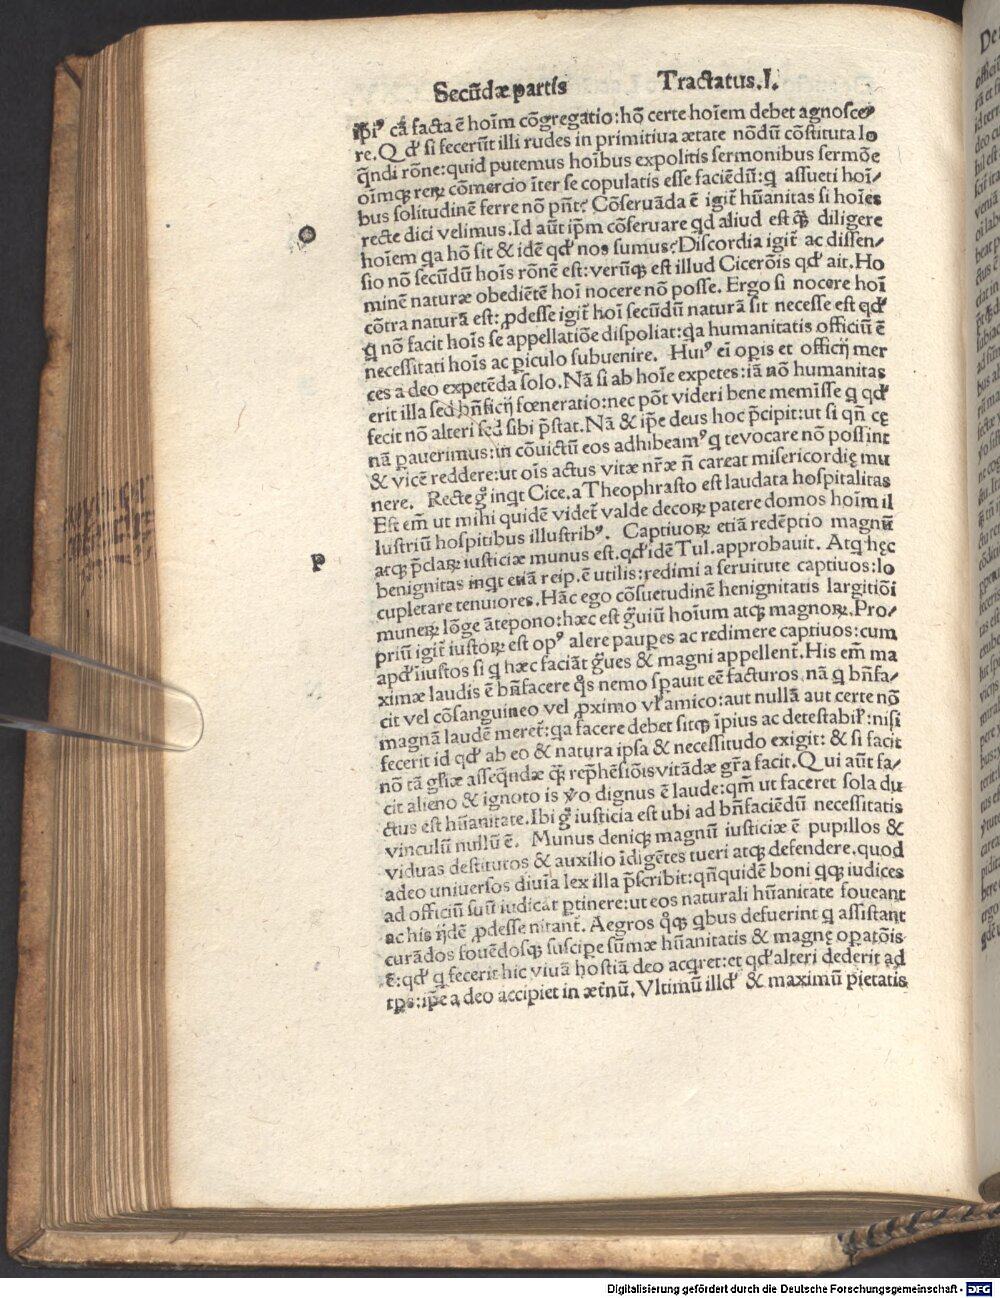 Secūdæ partis Tractatus.I.
ipi⁹ cā facta ē hoīm cōgregatio:hō certe hoīem debet agnosce⸗
re. Qd̛ si fecerūt illi rudes in primitiua ætate nōdū cōstituta lo
q̄ndi rōne:quid putemus hoībus expolitis sermonibus sermōe
oīmqꝫ rerꝝ cōmercio īter se copulatis esse faciēdū:q assueti hoī⸗
bus solitudinē ferre nō pn̄t? Cōseruāda ē igit̄ hūanitas si hoīes
recte dici velimus. Id aūt ip̄m cōseruare qd aliud est q̄ꝫ diligere
hoīem qa hō sit & idē qd̛ nos sumus? Discordia igit̄ ac dissen⸗
sio nō secūdū hoīs rōnē est: verūqꝫ est illud Cicerōis qd̛ ait. Ho
minē naturæ obediētē hoī nocere nō posse. Ergo si nocere hoī
cōtra naturā est: ꝓdesse igit̄ hoī secūdū naturā sit necesse est qd̛
q nō facit hoīs se appellatiōe dispoliat:qa humanitatis officiū ē
necessitati hoīs ac ꝑiculo subuenire. Hui⁹ ei opis et officij mer
ces a deo expetēda solo. Nā si ab hoīe expetes:iā nō humanitas
erit illa sed bn̄ficij fœneratio:nec pōt videri bene memīsse q qd̛
fecit nō alteri sed sibi p̄stat. Nā & ip̄e deus hoc p̄cipit:ut si qn̄ cę
nā pauerimus:in cōuictū eos adhibeam⁹ q reuocare nō possint
& vicē reddere:ut oīs actus vitæ nr̄æ n̄ careat misericordię mu
nere. Recte g̊ inqt Cice. a Theophrasto est laudata hospitalitas
Est em̄ ut mihi quidē videt̄ valde decorꝝ patere domos hoīm il
lustriū hospitibus illustrib⁹. Captiuorꝝ etiā redēptio magnū
atqꝫ p̄clarꝝ iusticiæ munus est. qd̛ idē Tul. approbauit. Atqꝫ hęc
benignitas inqt etiā reip. ē utilis:redimi a seruitute captiuos:lo
cupletare tenuiores. Hāc ego cōsuetudinē henignitatis largitiōi
munerꝝ lōge ātepono:hæc est g̊uiū hoīum atqꝫ magnorꝝ. Pro⸗
priū igit̄ iustorꝝ est op⁹ alere pauꝑes ac redimere captiuos:cum
apd̛ iīustos si q hæc faciāt g̊ues & magni appellent̄. His em̄ ma
ximæ laudis ē bn̄facere q̊s nemo sꝑauit eē facturos. nā q bn̄fa⸗
cit vel cōsanguineo vel ꝓximo vl̛ amico:aut nullā aut certe nō
magnā laudē meret̄:qa facere debet sitqꝫ īpius ac detestabil̛:nisi
fecerit id qd̛ ab eo & natura ipsa & necessitudo exigit: & si facit
nō tā gl̛iæ asseq̄ndæ q̄ꝫ rep̄hēsiōis vitādæ gr̄a facit. Qui aūt fa⸗
cit alieno & ignoto is ỽo dignus ē laude:qm̄ ut faceret sola du
ctus est hūanitate. Ibi g̊ iusticia est ubi ad bn̄faciēdū necessitatis
vinculū nullū ē. Munus deniqꝫ magnū iusticiæ ē pupillos &
viduas destitutos & auxilio īdigētes tueri atqꝫ defendere. quod
adeo uniuersos diuīa lex illa p̄scribit:qn̄quidē boni qqꝫ iudices
ad officiū suū iudicāt ꝑtinere:ut eos naturali hūanitate foueant
ac his ijdē ꝓdesse nitant̄. Aegros q̊qꝫ qbus defuerint q assistant
curādos fouēdosqꝫ suscipe sūmæ hūanitatis & magnę opatōis
ē:qd̛ q fecerit hic viuā hostiā deo acqret:et qd̛ alteri dederit ad
tp̄s:ip̄e a deo accipiet in æt̄nū. Vltimū illd̛ & maximū pietatis
O
P
Digitalisierung gefördert durch die Deutsche Forschungsgemeinschaft - DFG